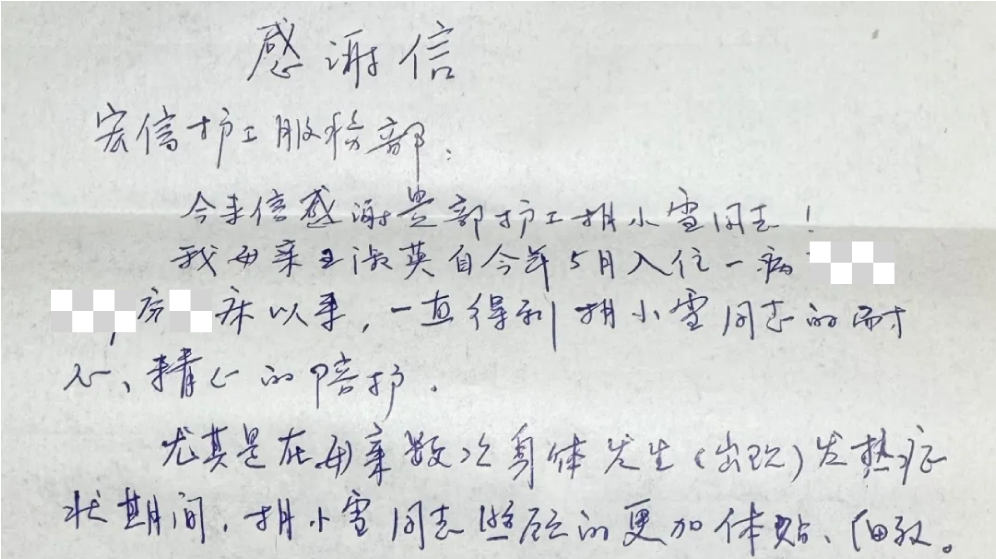 感谢信
宏信护工服务部：
今来信感谢贵部护工胡小雪同志！
我母亲王淑英自今年5月入住一病
房 床以来，一直得到胡小雪同志的耐
心、精心的陪护．
尤其是在母亲数次身体发生（出现）发热症
状期间．胡小雪同志照顾的更加体贴、细致。